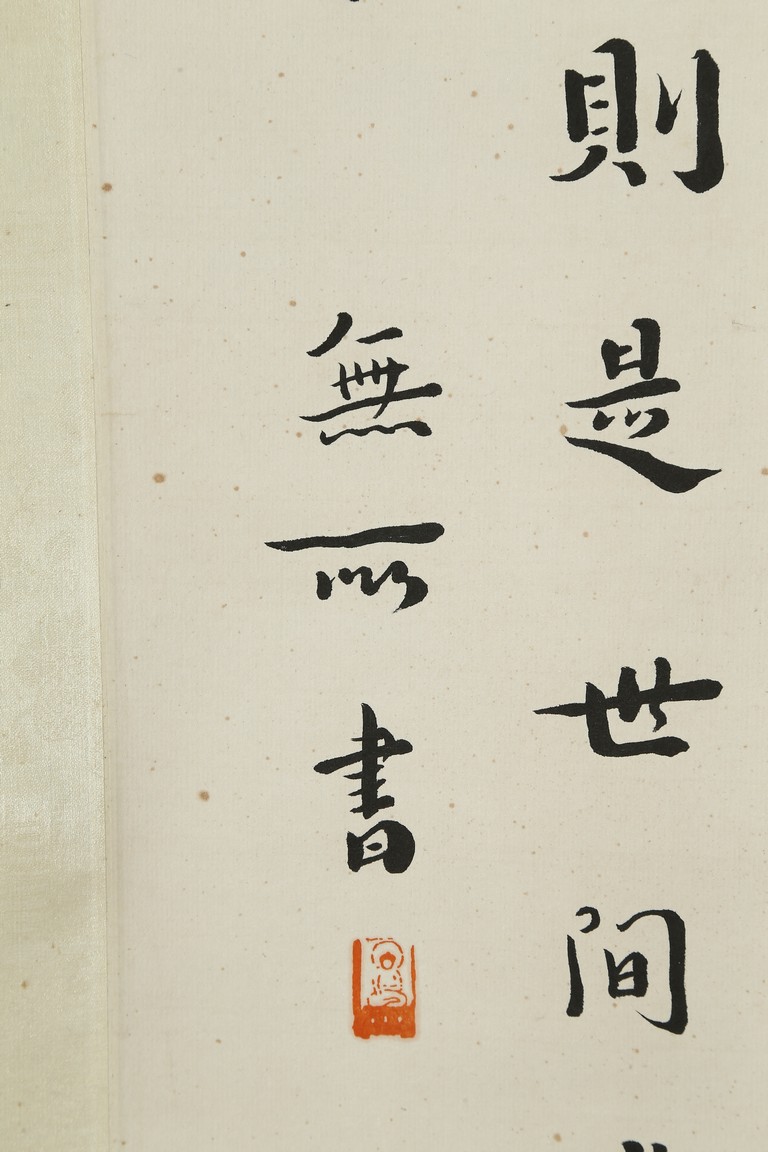 則是世間
無所書